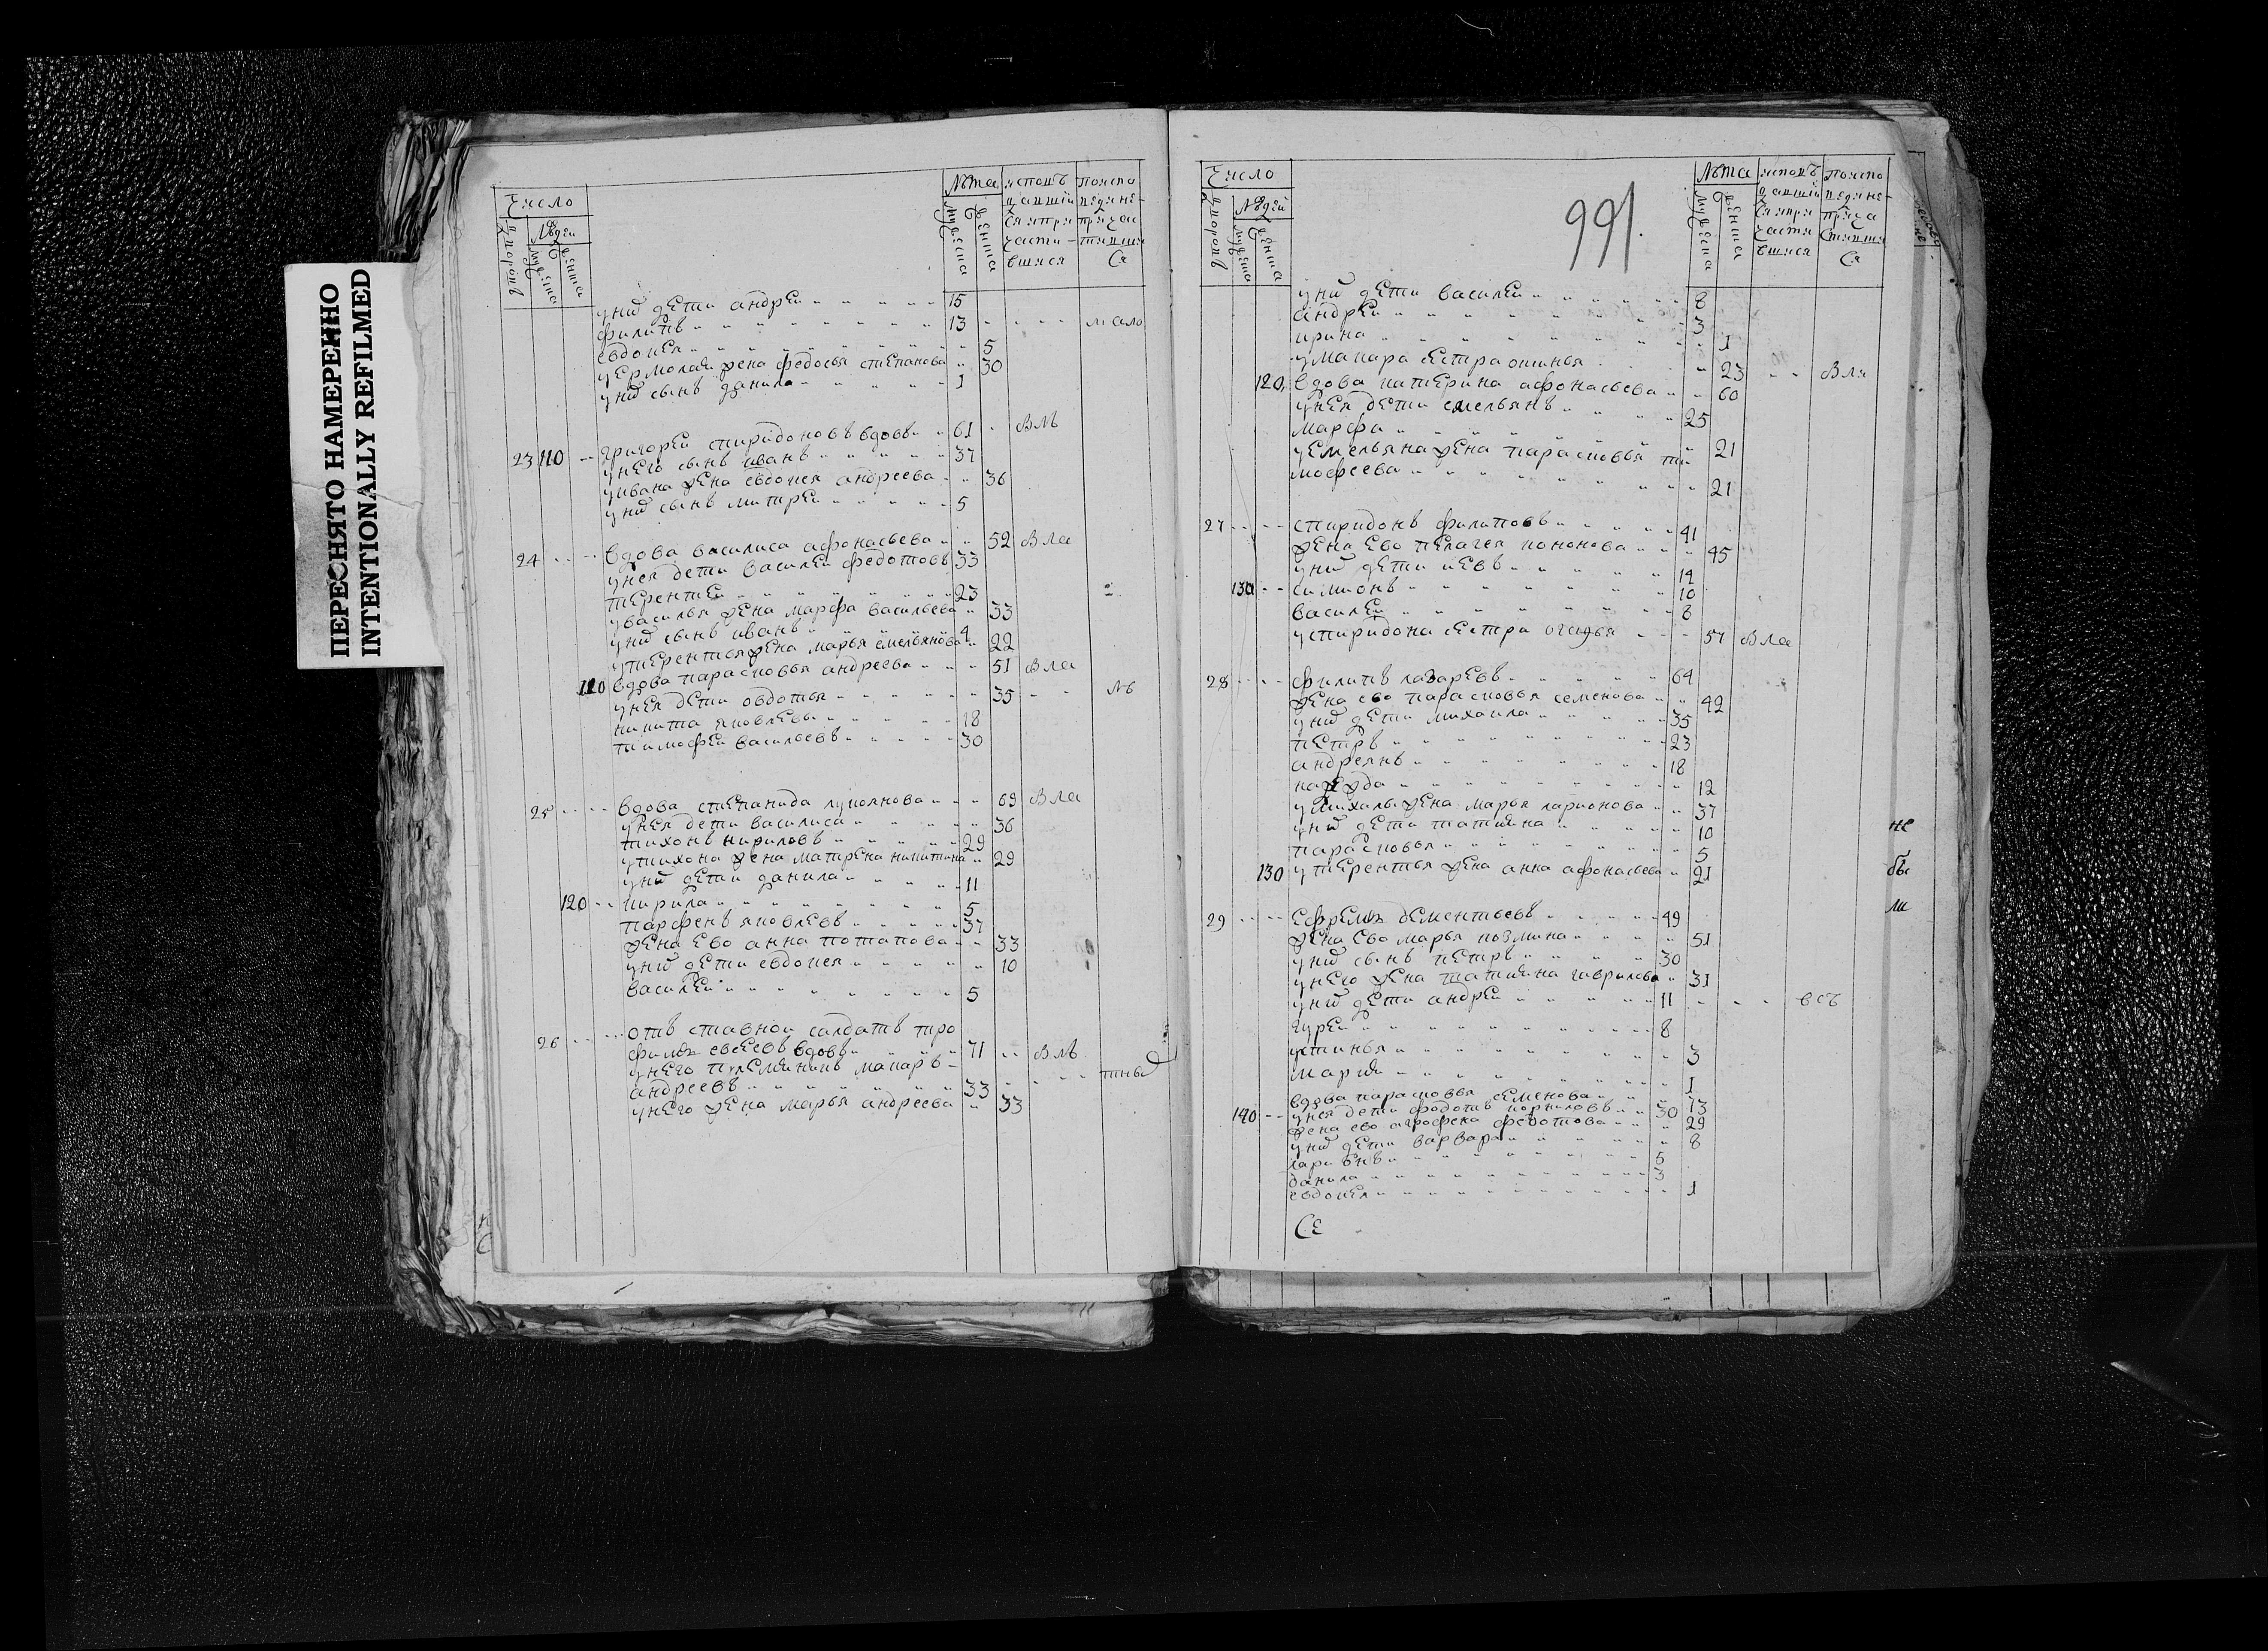 ПЕРЕСНЯТО НАМЕРЕННО
INTENTIONALLY REFILMED
Число
дворовъ
Людей
мужеска
женска
Лѣта
мужеска
женска
исповѣ
давшiи
ся и при
части
вшися
по испо
веди не
прича
тивши
ся
у нихъ дети андреи 15
филипъ 13 мало
евдокея 5
у ермолаи жена федосья степанова 30
у нихъ сынъ данила 1
23 110 григореи спиридоновъ вдовъ 61 влъ
у него сынъ иванъ 37
у ивана жена евдокея андреева 36
у нихъ сынъ митреи 5
24 вдова василиса афонасьева 52 вла
у нея дети василеи федотовъ 33
терентеи 23
у василья жена марфа васильева 33
у нихъ сынъ иванъ 4
у терентья жена марья емельянова 22
110 вдова парасковья андреева 51 вла
у нея дети овдотья 35 лѣ
никита яковлевы 18
тимофеи васильевъ 30
25 вдова степанида лукоянова 69 вла
у нея дети василиса 36
тихонъ кириловъ 29
у тихона жена матрена никитина 29
у нихъ дети данила 11
120 кирила 5
парфенъ яковлевъ 37
жена ево анна потапова 33
у нихъ дети евдокея 10
василеи 5
26 отъ ставнои салдатъ тро
филъ евсеевъ вдовъ 71 влъ
у него племяникъ макаръ тныхъ
андреевъ 33
у него жена марья андреева 33
Число
дворовъ
Людей
мужеска
женска
991.
Лѣта
мужеска
женска
исповѣ
давшiи
ся и при
части
вшися
по испо
веди не
прича
стивши
ся
у нихъ дети василеи 8
андреи 3
ирина 1
у макара сестра окинья 23 вля
120 вдова катерина афонасьева 60
у нея дети емельянъ 25
марфа 21
у емельяна жена парасковья ти
мофеева 21
27 спиридонъ филиповъ 41
жена ево пелагея кононова 45
у нихъ дети иевъ 14
130 симионъ 10
василеи 8
у спиридона сестра 51 вла
28 филипъ лазаревъ 64
жена ево парасковья семенова 42
у нихъ дети михаила 35
петръ 23
андреянъ 18
надежда 12
у михаилы жена марья ларионова 37
у нихъ дети татияна 10 не
парасковья 5
130 у терентья жена анна афонасьева 21 бы
29 ефремъ дементьевъ 49 ли
жена ево марья козмина 51
у нихъ сынъ петръ 30
у него жена татияна гаврилова 31
у нихъ дети андреи 11 всѣ
гуреи 8
устинья 3
мария 1
вдова парасковья семенова 73
140 у нея дети федотъ корниловъ 30
жена ево агрофена федотова 29
у нихъ дети варвара 8
ларионъ 5
данила 3
евдокея 1
Се